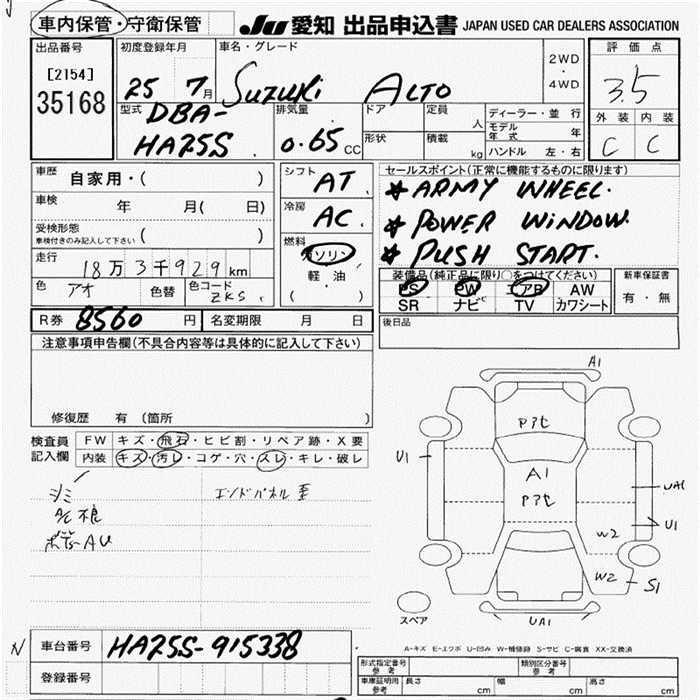 車内保管・守衛保管 JU 愛知 出品申込書 JAPAN USED CAR DEALERS ASSOCIATION
出品番号 初度登録年月 車名・グレード 評価点
[2154] 25 7月 Suzuki ALTO 2WD・4WD 3.5
35168 型式 DBA-HA25S 排気量 0.65CC ドア 定員 人 ディーラー・並行 外装 内装
形状 積載 kg モデル年式 年 C C
ハンドル 左・右
車歴 自家用・( ) シフト AT セールスポイント(正常に機能するものに限ります)
車検 年 月( 日) 冷房 AC. *ARMY WHEEL.
受検形態 ( ) *POWER WINDOW.
車検付きのみ記入して下さい 燃料 ガソリン *PUSH START.
走行 18万3千929km 軽油 装備品(純正品に限り○をつけてください) 新車保証書
色 アオ 色替 色コード ZKS ( ) PS PW エアB AW 有・無
SR ナビ TV カワシート
R券 8560 円 名変期限 月 日 後日品
注意事項申告欄(不具合内容等は具体的に記入して下さい)
修復歴 有 (箇所 )
検査員 FW キズ・飛石・ヒビ割・リペア跡・X要
記入欄 内装 キズ・汚レ・コゲ・穴・スレ・キレ・破レ
シミ エンドパネル歪
ボデーAU
A1
Pアセ
U1 A1 UA1
Pアセ
U1
W2
W2 S1
スペア UA1
A-キズ E-エクボ U-凹み W-補修跡 S-サビ C-腐食 XX-交換済
N 車台番号 HA25S-915338
登録番号
形式指定番号 参考 類別区分番号 参考
車庫証明用 参考 長さ cm 幅 cm 高さ cm